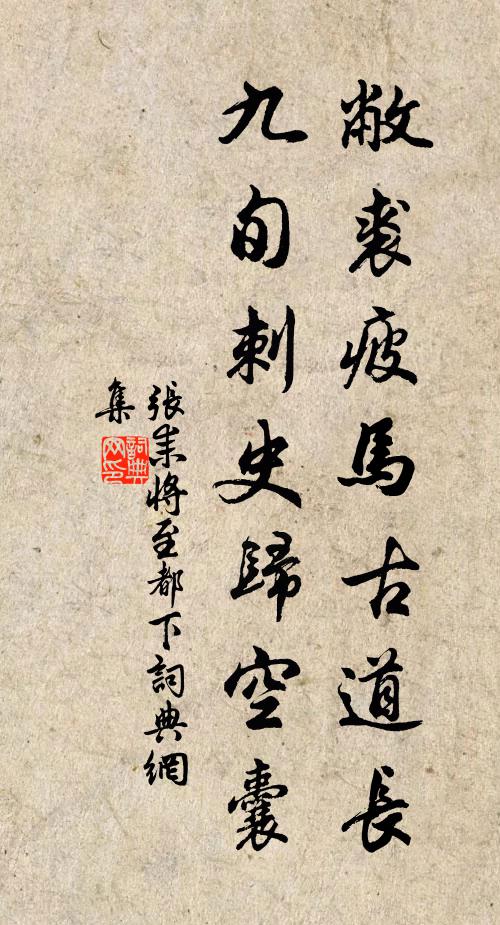 敝裘疲馬古道長
九旬刺史歸空囊
張耒將至都下詞典網
集
詞典
网印